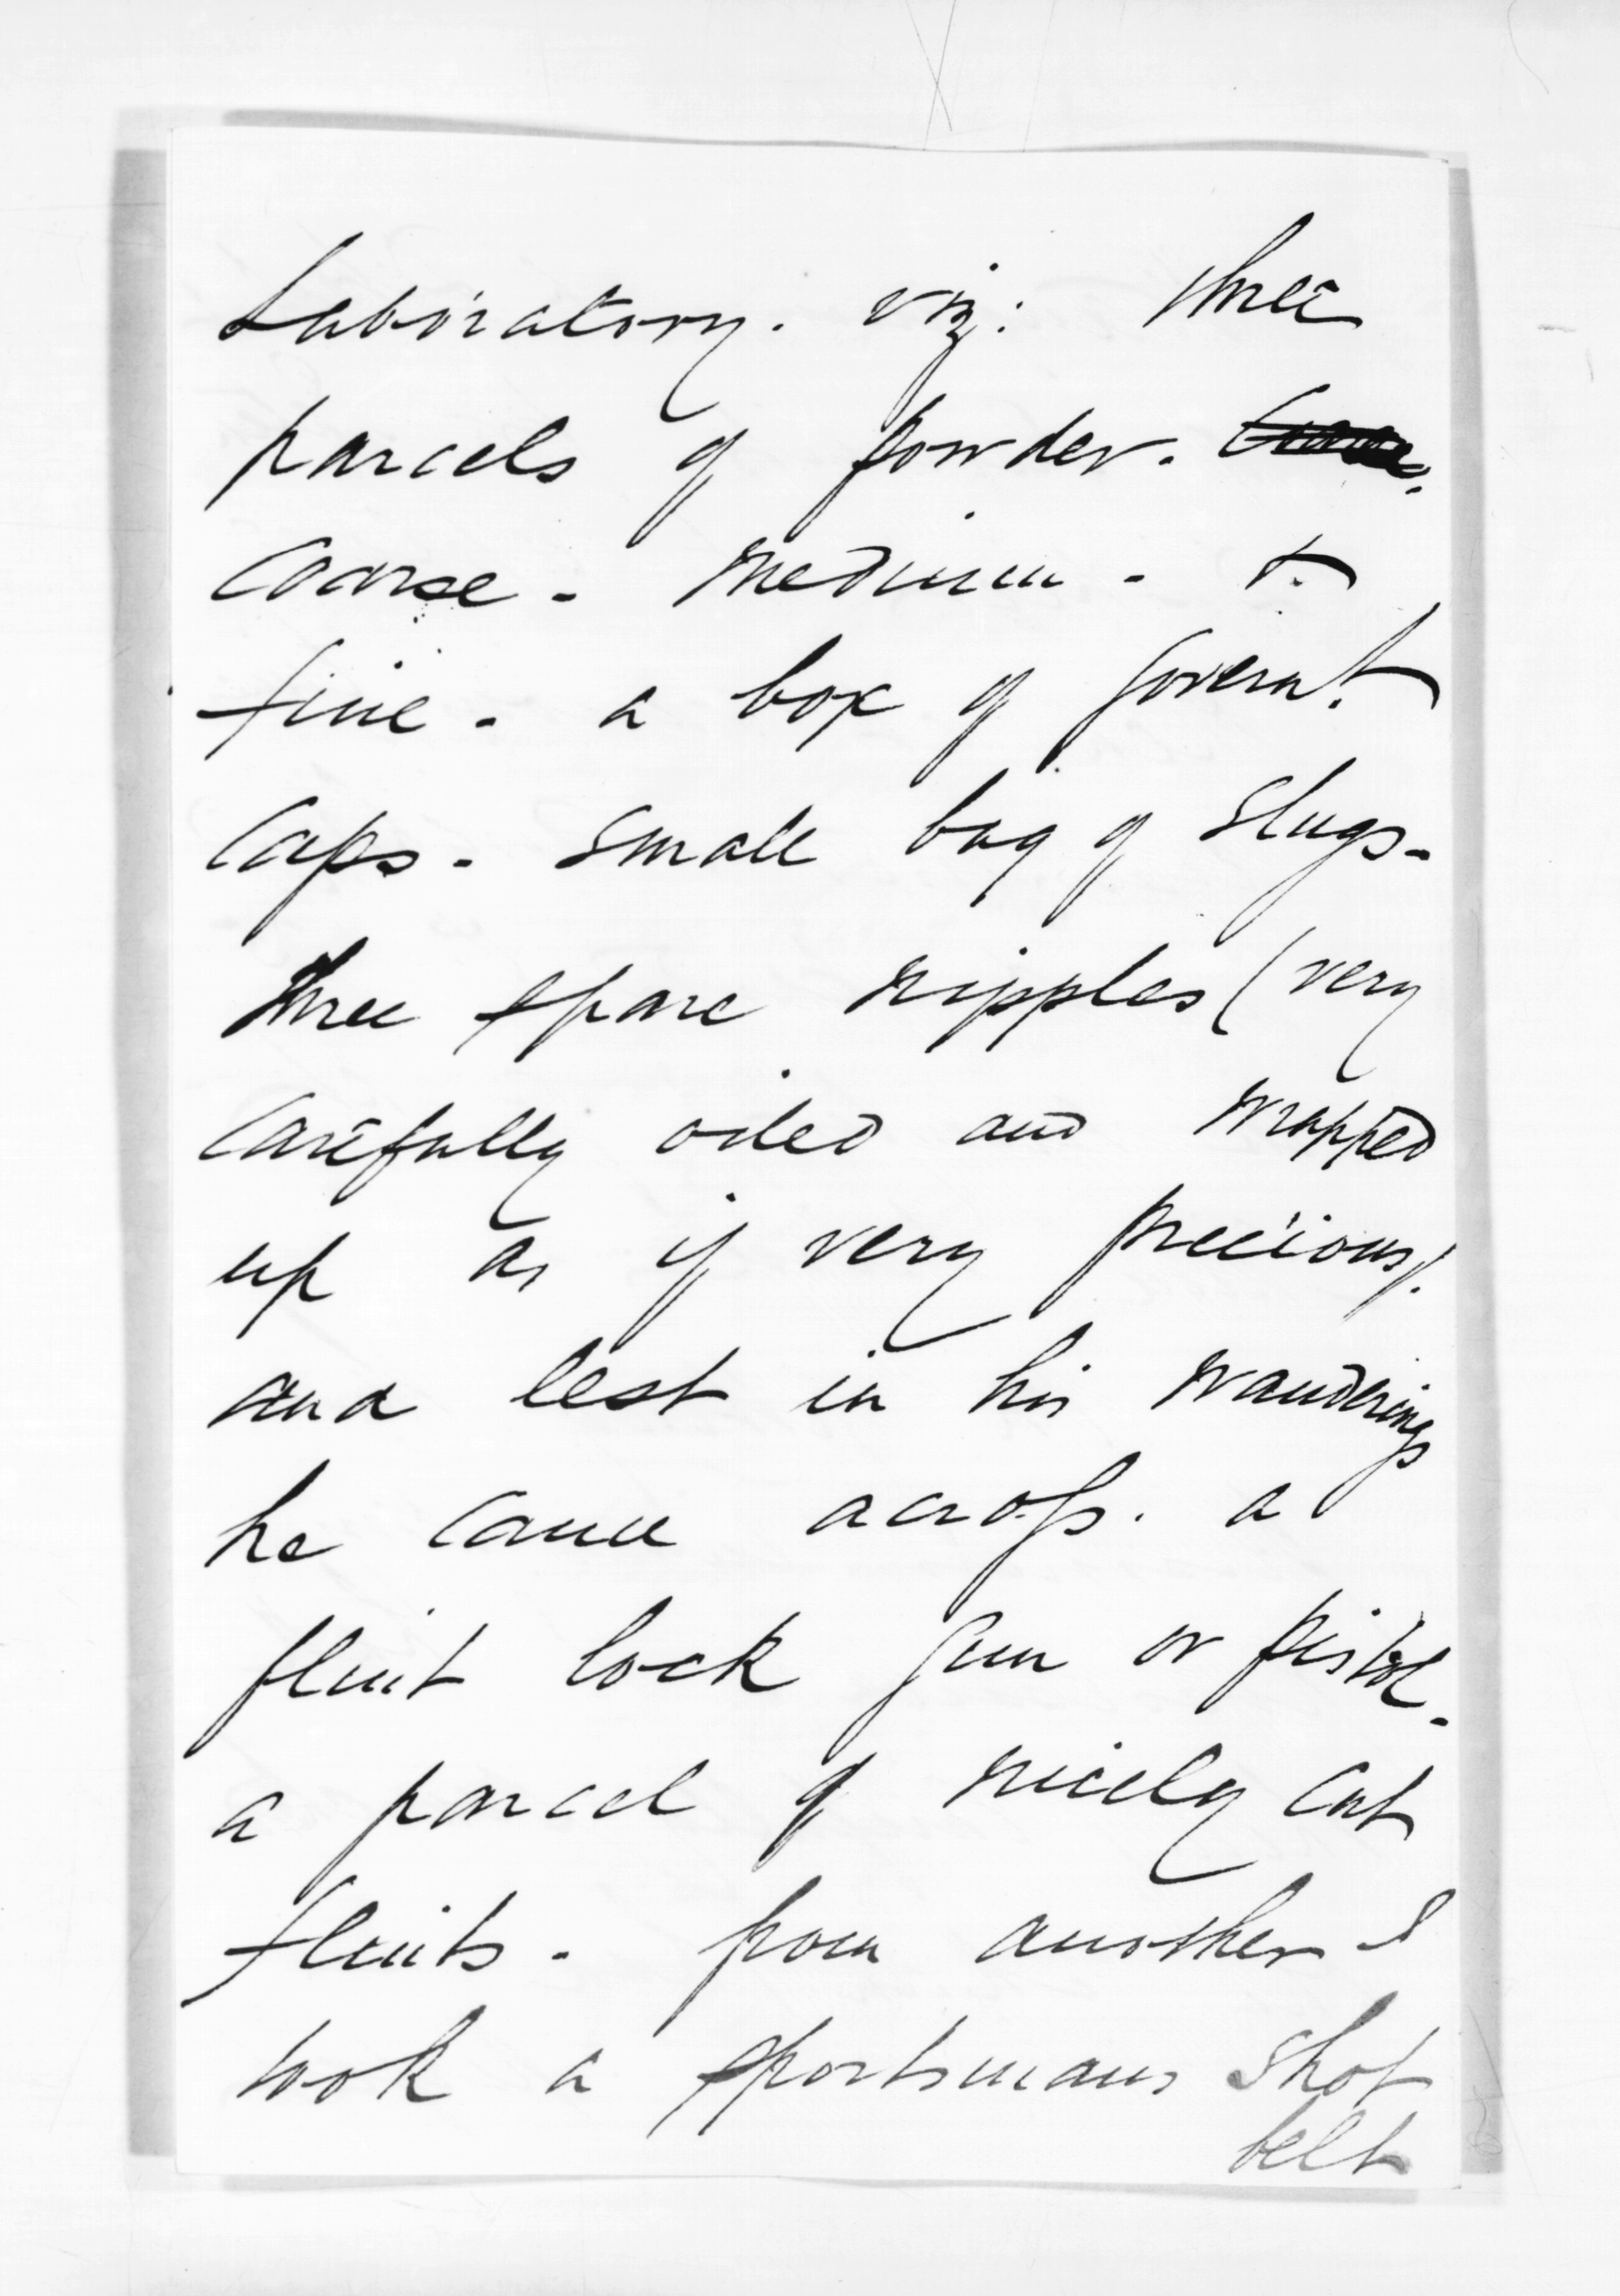 Laboratory. viz: three
parcels of powder.
Coarse - Medium - &
fine - a box of Governt.
Caps - Small bag of Slugs -
three spare nipples (very
Carefully oiled and wrapped
up as if very precious).
and lest in his wanderings
he came across. a
flint lock gun or pistol -
a parcel of nicely cut
flints - from another I
took a sportsmans shot
belt